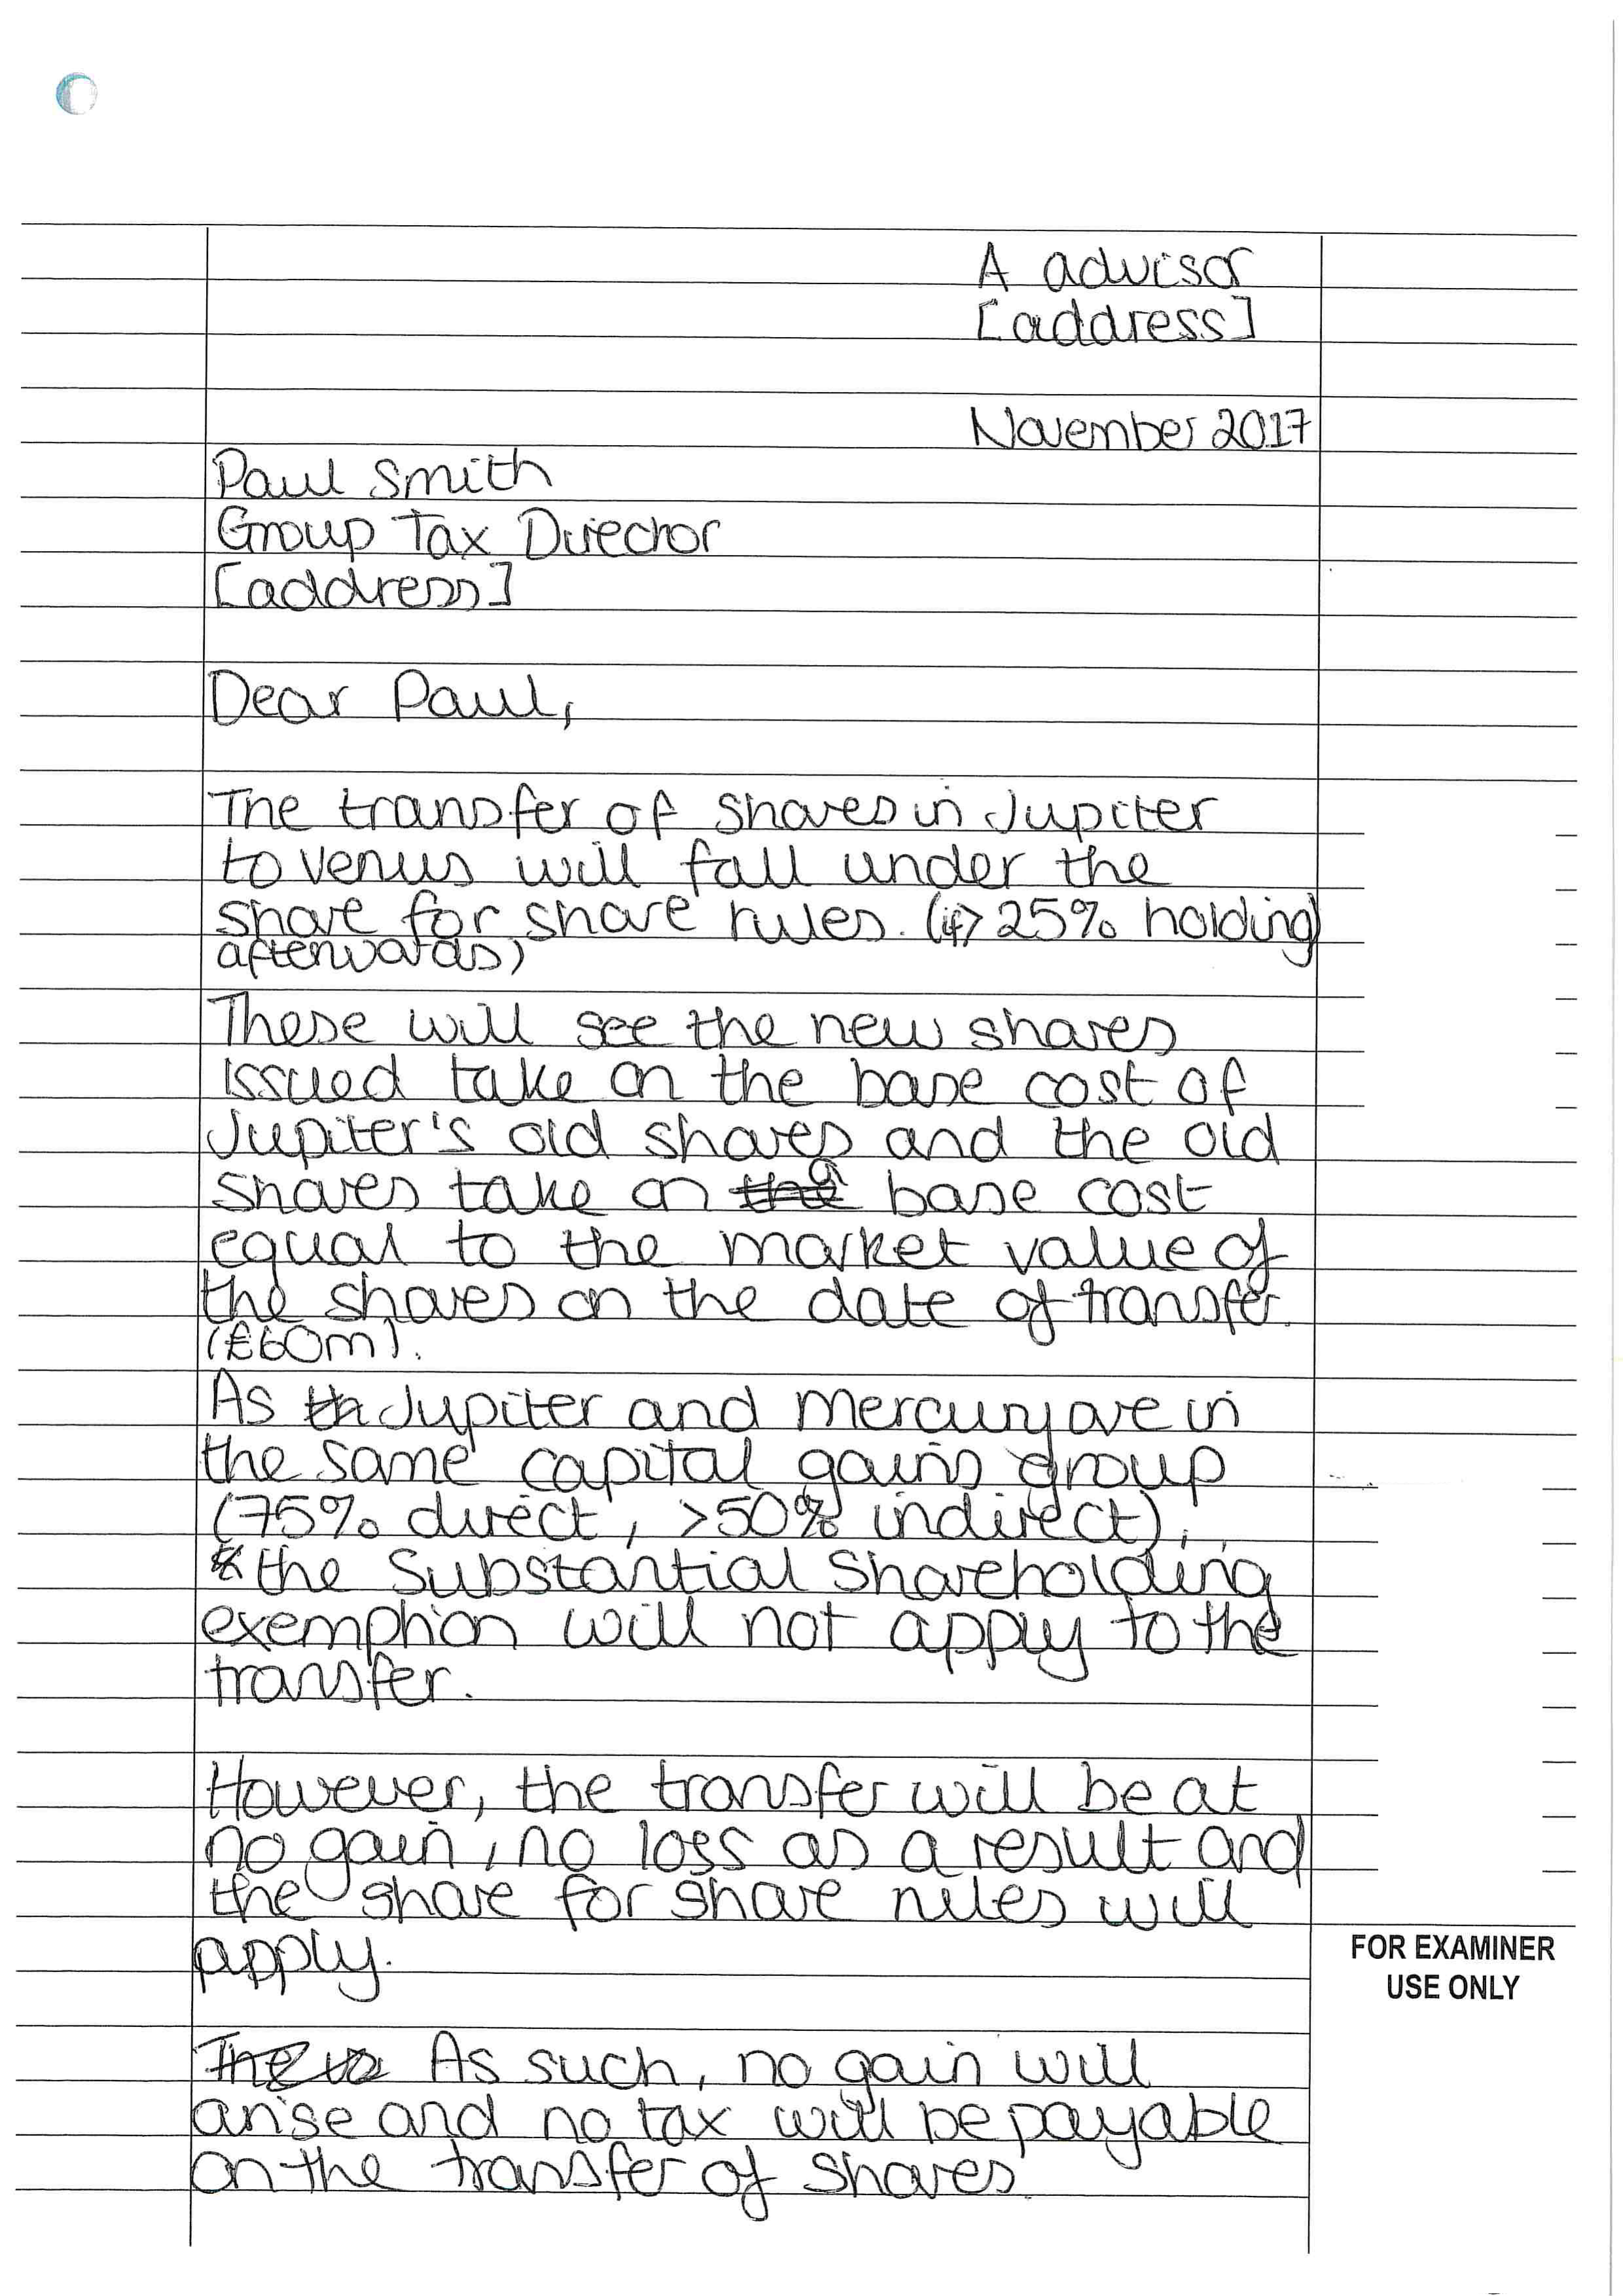 A advisor
[address]
November 2017
Paul Smith
Group Tax Director
[address]
Dear Paul,
The transfer of shares in Jupiter
to Venus will fall under the
share for share rules. (if > 25% holding
afterwards)
These will see the new shares
issued take on the base cost of
Jupiter's old shares and the old
shares take on the a base cost
equal to the market value of
the shares on the date of transfer.
(£60m).
As th Jupiter and Mercury are in
the same capital gains group
(75% direct, >50% indirect),
the Substantial Shareholding
exemption will not apply to the
transfer.
However, the transfer will be at
no gain, no loss as a result and
the share for share rules will
apply.
As such, no gain will
arise and no tax will be payable
on the transfer of shares.
FOR EXAMINER
USE ONLY